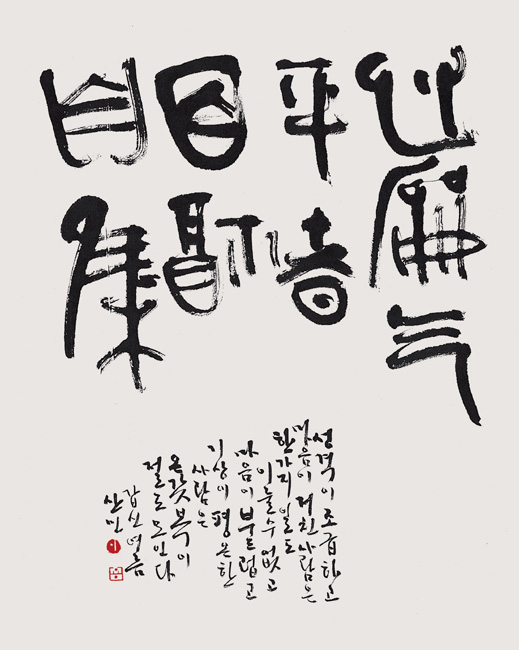 心龢气
平者
百福
自集
성격이 조급하고
마음이 거친 사람은
한가지 일도
이룰 수 없고
마음이 부드럽고
기상이 평온한
사람은
온갖 복이
절로 모인다
갑신 여름
산민